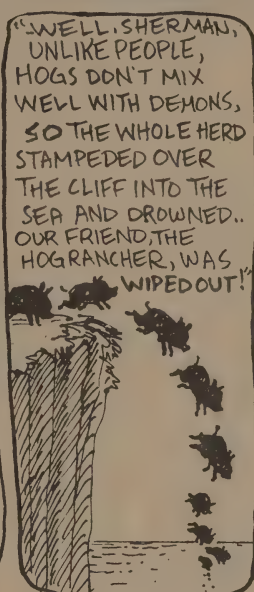 "..WELL, SHERMAN,
UNLIKE PEOPLE,
HOGS DON'T MIX
WELL WITH DEMONS,
SO THE WHOLE HERD
STAMPEDED OVER
THE CLIFF INTO THE
SEA AND DROWNED..
OUR FRIEND, THE
HOGRANCHER, WAS
WIPED OUT!"